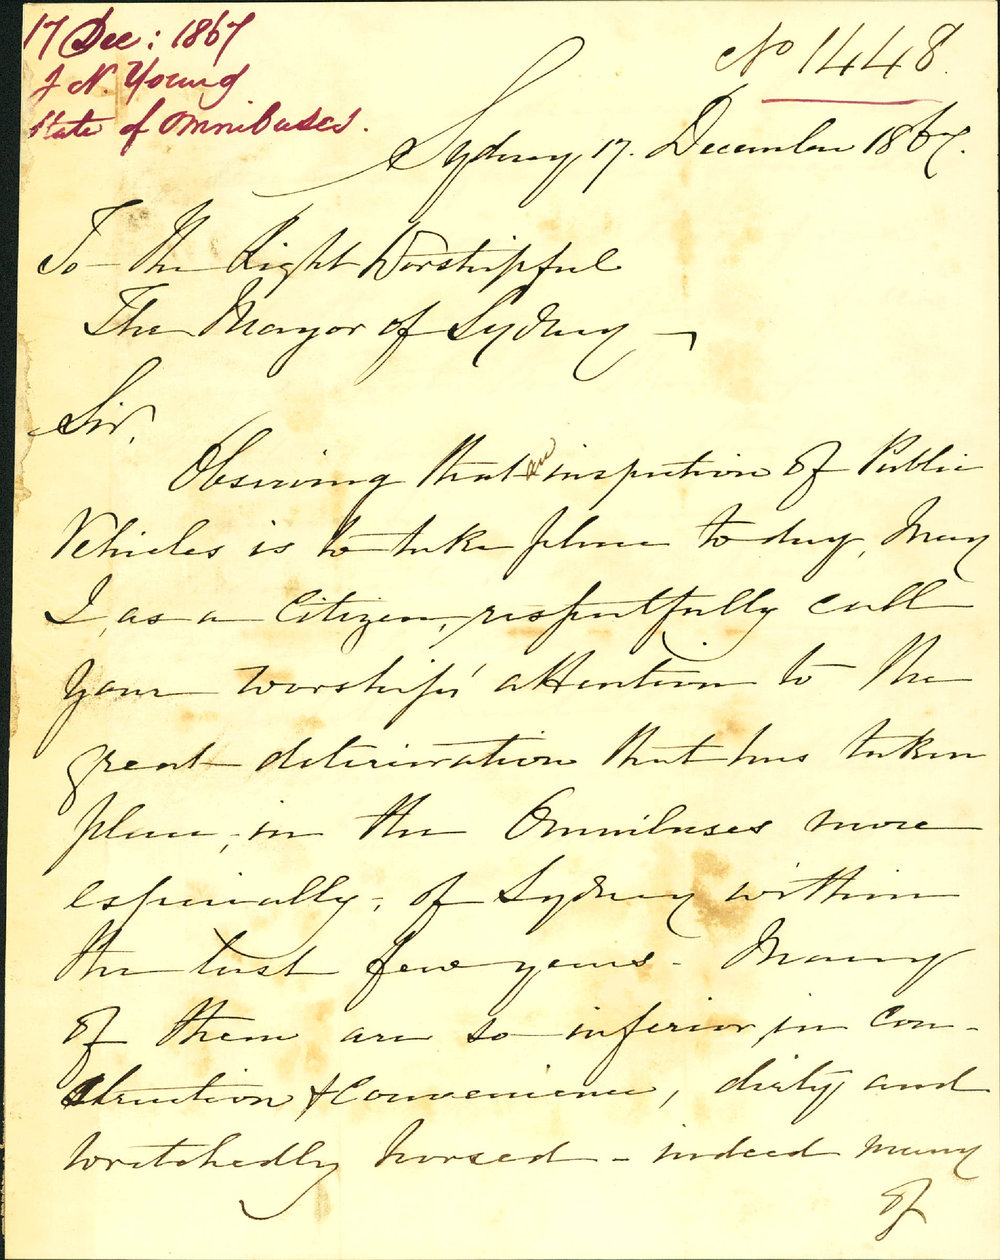 17 Dec: 1867
J N. Young
State of Omnibuses.
No 1448.
Sydney 17. December 1867.
To the Right Worshipful
The Mayor of Sydney
Sir,
Observing that an inspection of Public
Vehicles is to take place to day, May
I, as a Citizen, respectfully call
your worship's attention to the
great deterioration that has taken
place, in the Omnibuses more
especially, of Sydney within
the last few years - Many
of them are so inferior in con-
struction & Convenience, dirty and
wretchedly horsed - indeed many
of